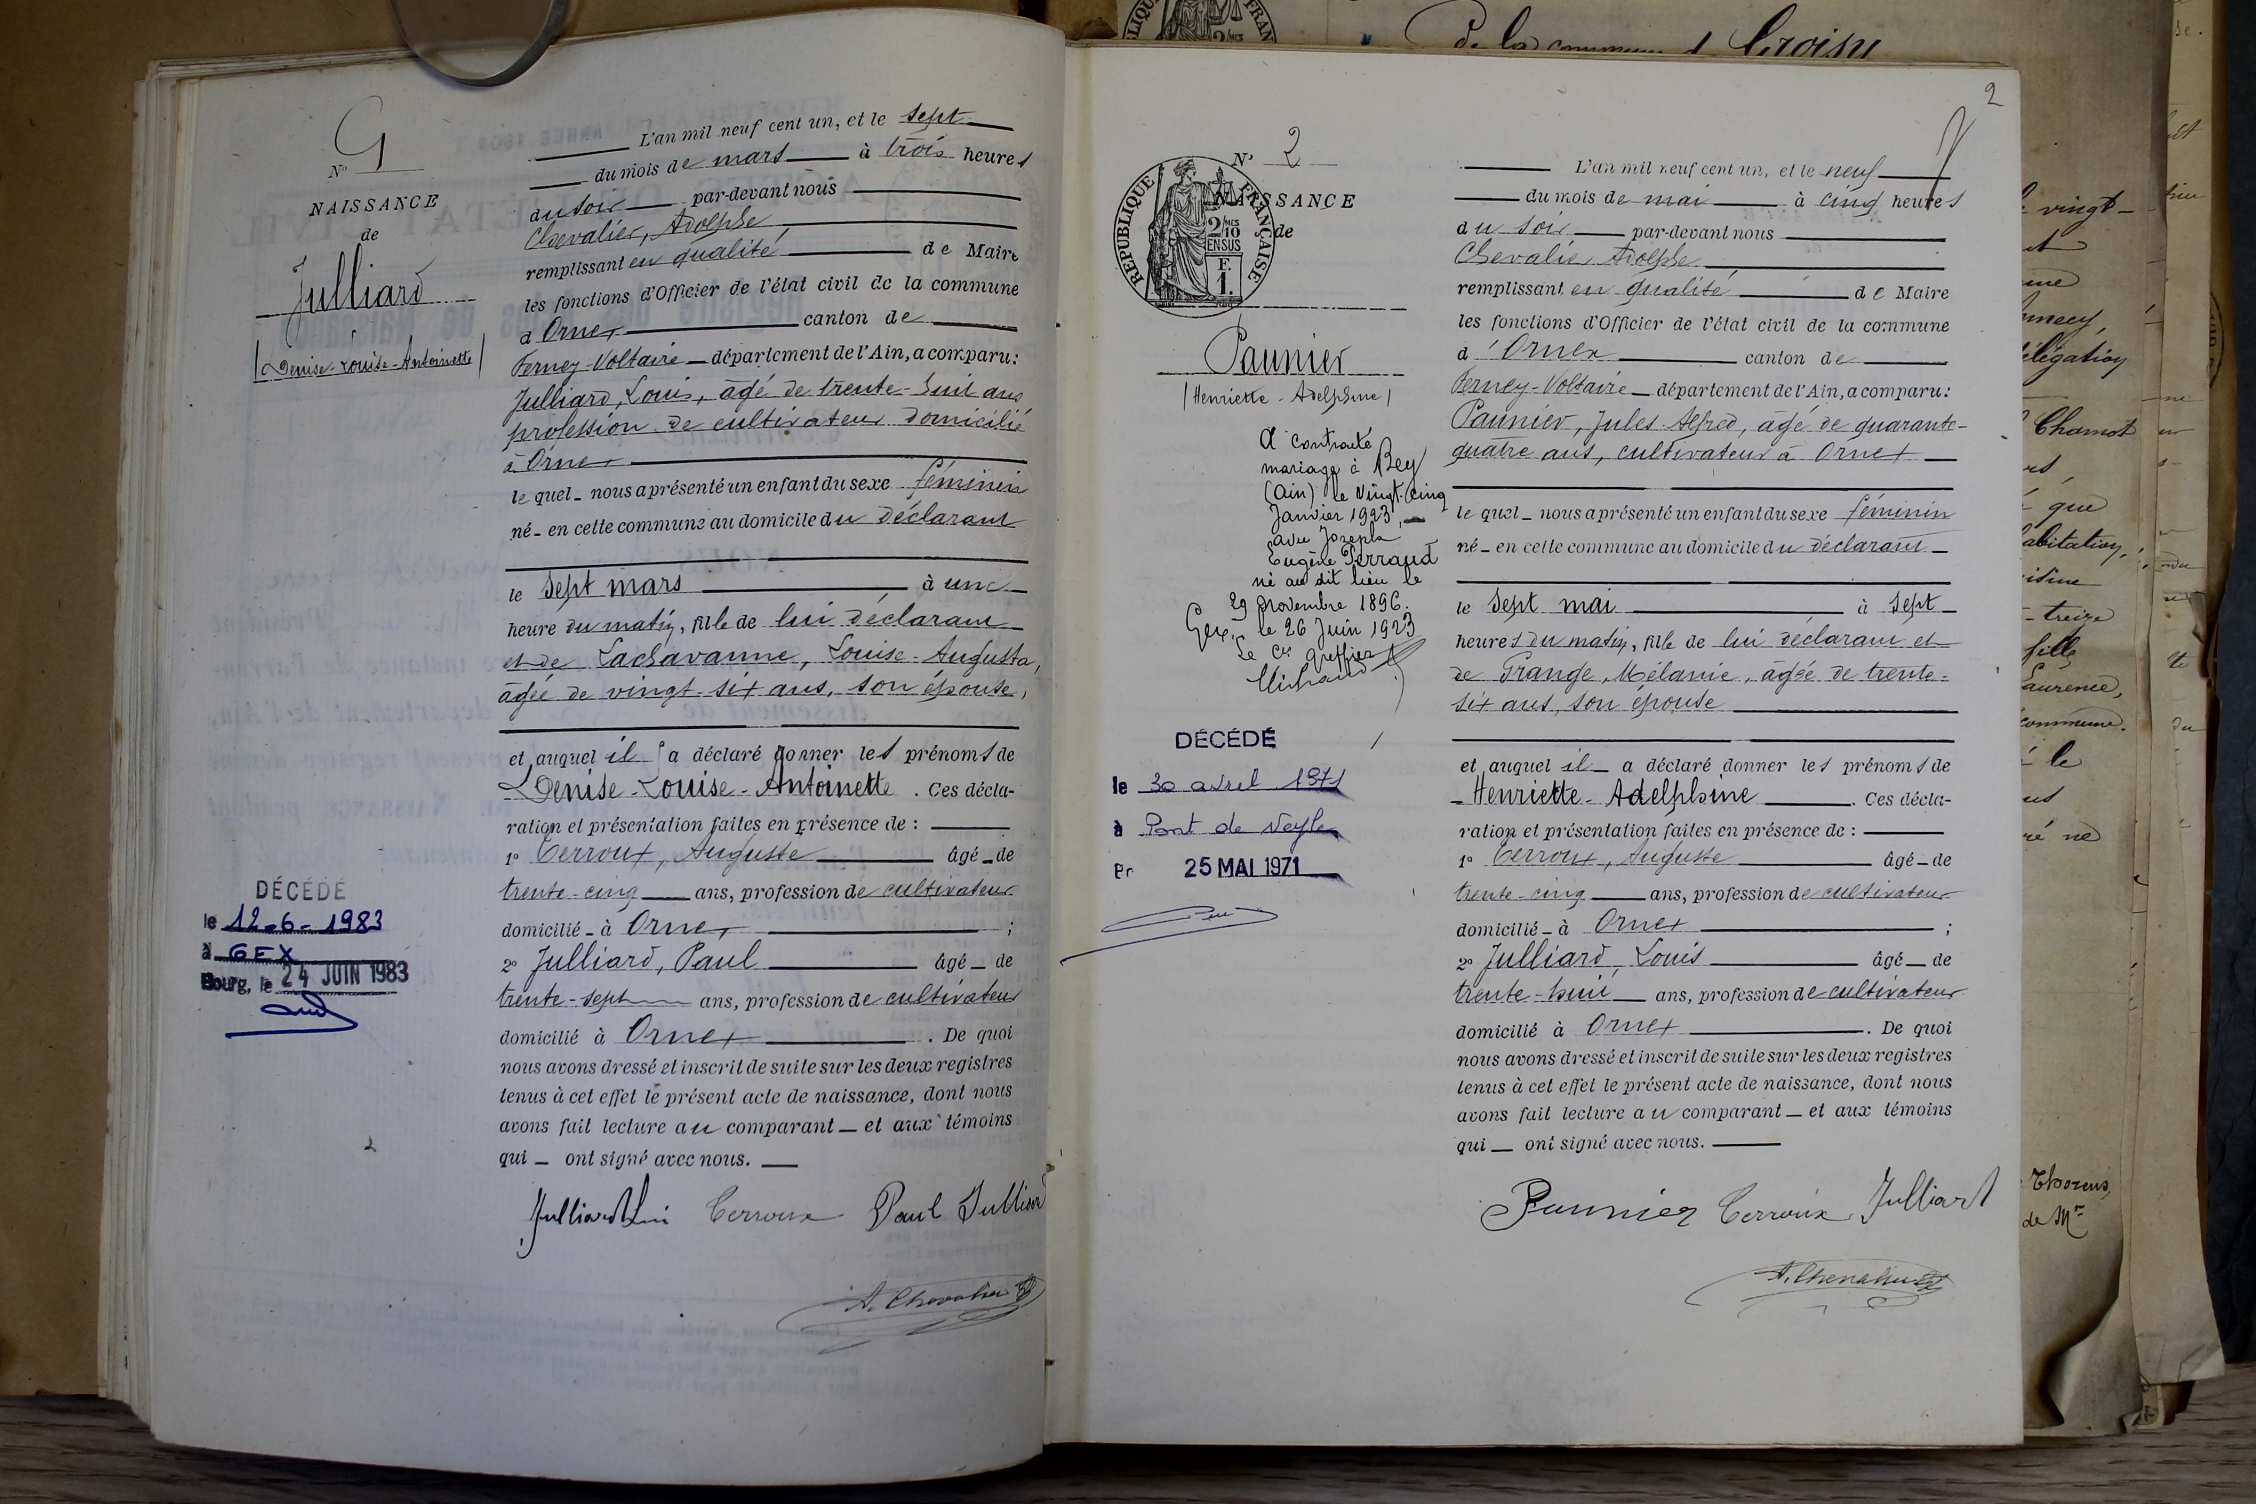 N° 1
NAISSANCE
de
Julliard
(Denise-Louise-Antoinette)
DÉCÉDÉ
le 12-6-1983
à GEX
Bourg, le 24 JUIN 1983
L'an mil neuf cent un, et le sept
du mois de mars à trois heures
du soir par-devant nous
Chevalier, Adolphe
remplissant en qualité de Maire
les fonctions d'Officier de l'état civil de la commune
d'Ornex canton de
Ferney-Voltaire département de l'Ain, a comparu:
Julliard, Louis, âgé de trente-huit ans
profession de cultivateur domicilié
à Ornex
le quel nous a présenté un enfant du sexe féminin
né en cette commune au domicile du déclarant
le sept mars à une
heure du matin, fille de lui déclarant
et de Lachavanne, Louise-Augusta,
âgée de vingt-six ans, son épouse,
et auquel il a déclaré donner les prénoms de
Denise-Louise-Antoinette. Ces décla-
ration et présentation faites en présence de :
1° Cerroux, Auguste âgé de
trente-cinq ans, profession de cultivateur
domicilié à Ornex ;
2° Julliard, Paul âgé de
trente-sept ans, profession de cultivateur
domicilié à Ornex . De quoi
nous avons dressé et inscrit de suite sur les deux registres
tenus à cet effet le présent acte de naissance, dont nous
avons fait lecture au comparant et aux témoins
qui ont signé avec nous.
Julliard Loui Cerroux Paul Julliard
A. Chevalier
2
N° 2
NAISSANCE
de
RÉPUBLIQUE FRANÇAISE
2/10 EN SUS
F. 1.
Paunier
(Henriette-Adelphine)
A contracté
mariage à Bey
(Ain) le vingt-cinq
Janvier 1923,
avec Joseph
Eugène Perraud
né au dit lieu le
29 novembre 1896.
Gex, le 26 Juin 1923
Le Cis Greffier
DÉCÉDÉ
le 30 avril 1971
à Pont de Veyle
25 MAI 1971
L'an mil neuf cent un, et le neuf
du mois de mai à cinq heures
du soir par-devant nous
Chevalier Adolphe
remplissant en qualité de Maire
les fonctions d'Officier de l'état civil de la commune
d'Ornex canton de
Ferney-Voltaire département de l'Ain, a comparu:
Paunier, Jules-Alfred, âgé de quarante-
quatre ans, cultivateur à Ornex
le quel nous a présenté un enfant du sexe féminin
né en cette commune au domicile du déclarant
le sept mai à sept
heures du matin, fille de lui déclarant et
de Grange, Mélanie, âgée de trente-
six ans, son épouse
et auquel il a déclaré donner les prénoms de
Henriette-Adelphine . Ces décla-
ration et présentation faites en présence de :
1° Cerroux, Auguste âgé de
trente-cinq ans, profession de cultivateur
domicilié à Ornex ;
2° Julliard, Louis âgé de
trente-huit ans, profession de cultivateur
domicilié à Ornex . De quoi
nous avons dressé et inscrit de suite sur les deux registres
tenus à cet effet le présent acte de naissance, dont nous
avons fait lecture au comparant et aux témoins
qui ont signé avec nous.
Paunier Cerroux Julliard
A. Chevalier
De la commune d
vingt-
élégation
Chamot
que
habitation,
treize
fille
Laurence,
commune.
le
né
Thorens,
de Mr